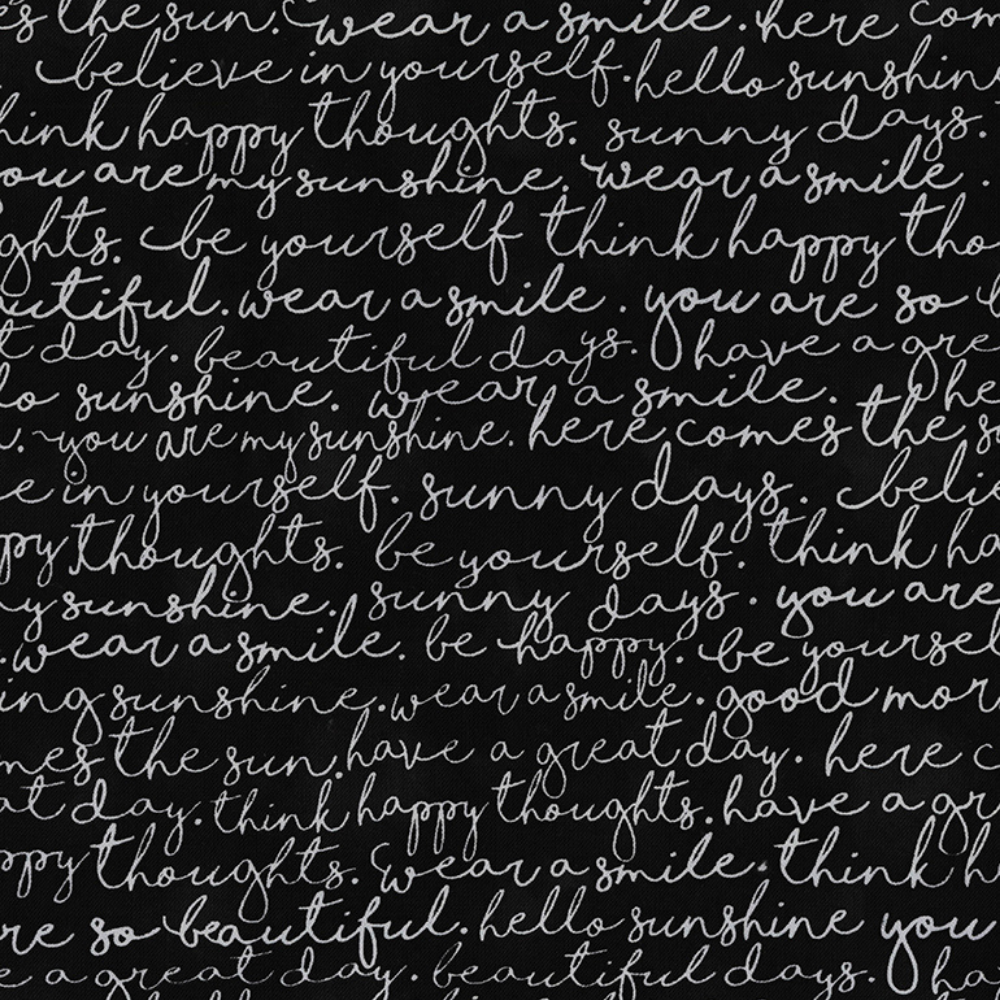 s the sun. wear a smile. here com
believe in yourself. hello sunshin
hink happy thoughts. sunny days.
ou are my sunshine. wear a smile.
ghts. be yourself think happy tho
utiful. wear a smile. you are so b
t day. beautiful days. have a gre
lo sunshine. wear a smile. the
. you are my sunshine. here comes the s
e in yourself. sunny days. belie
py thoughts. be yourself. think ha
y sunshine. sunny days. you are
. wear a smile. be happy. be yoursel
ing sunshine. wear a smile. good mor
mes the sun. have a great day. here c
at day. think happy thoughts. have a gr
ppy thoughts. wear a smile. think h
re so beautiful. hello sunshine you
e a great day. beautiful days. ha